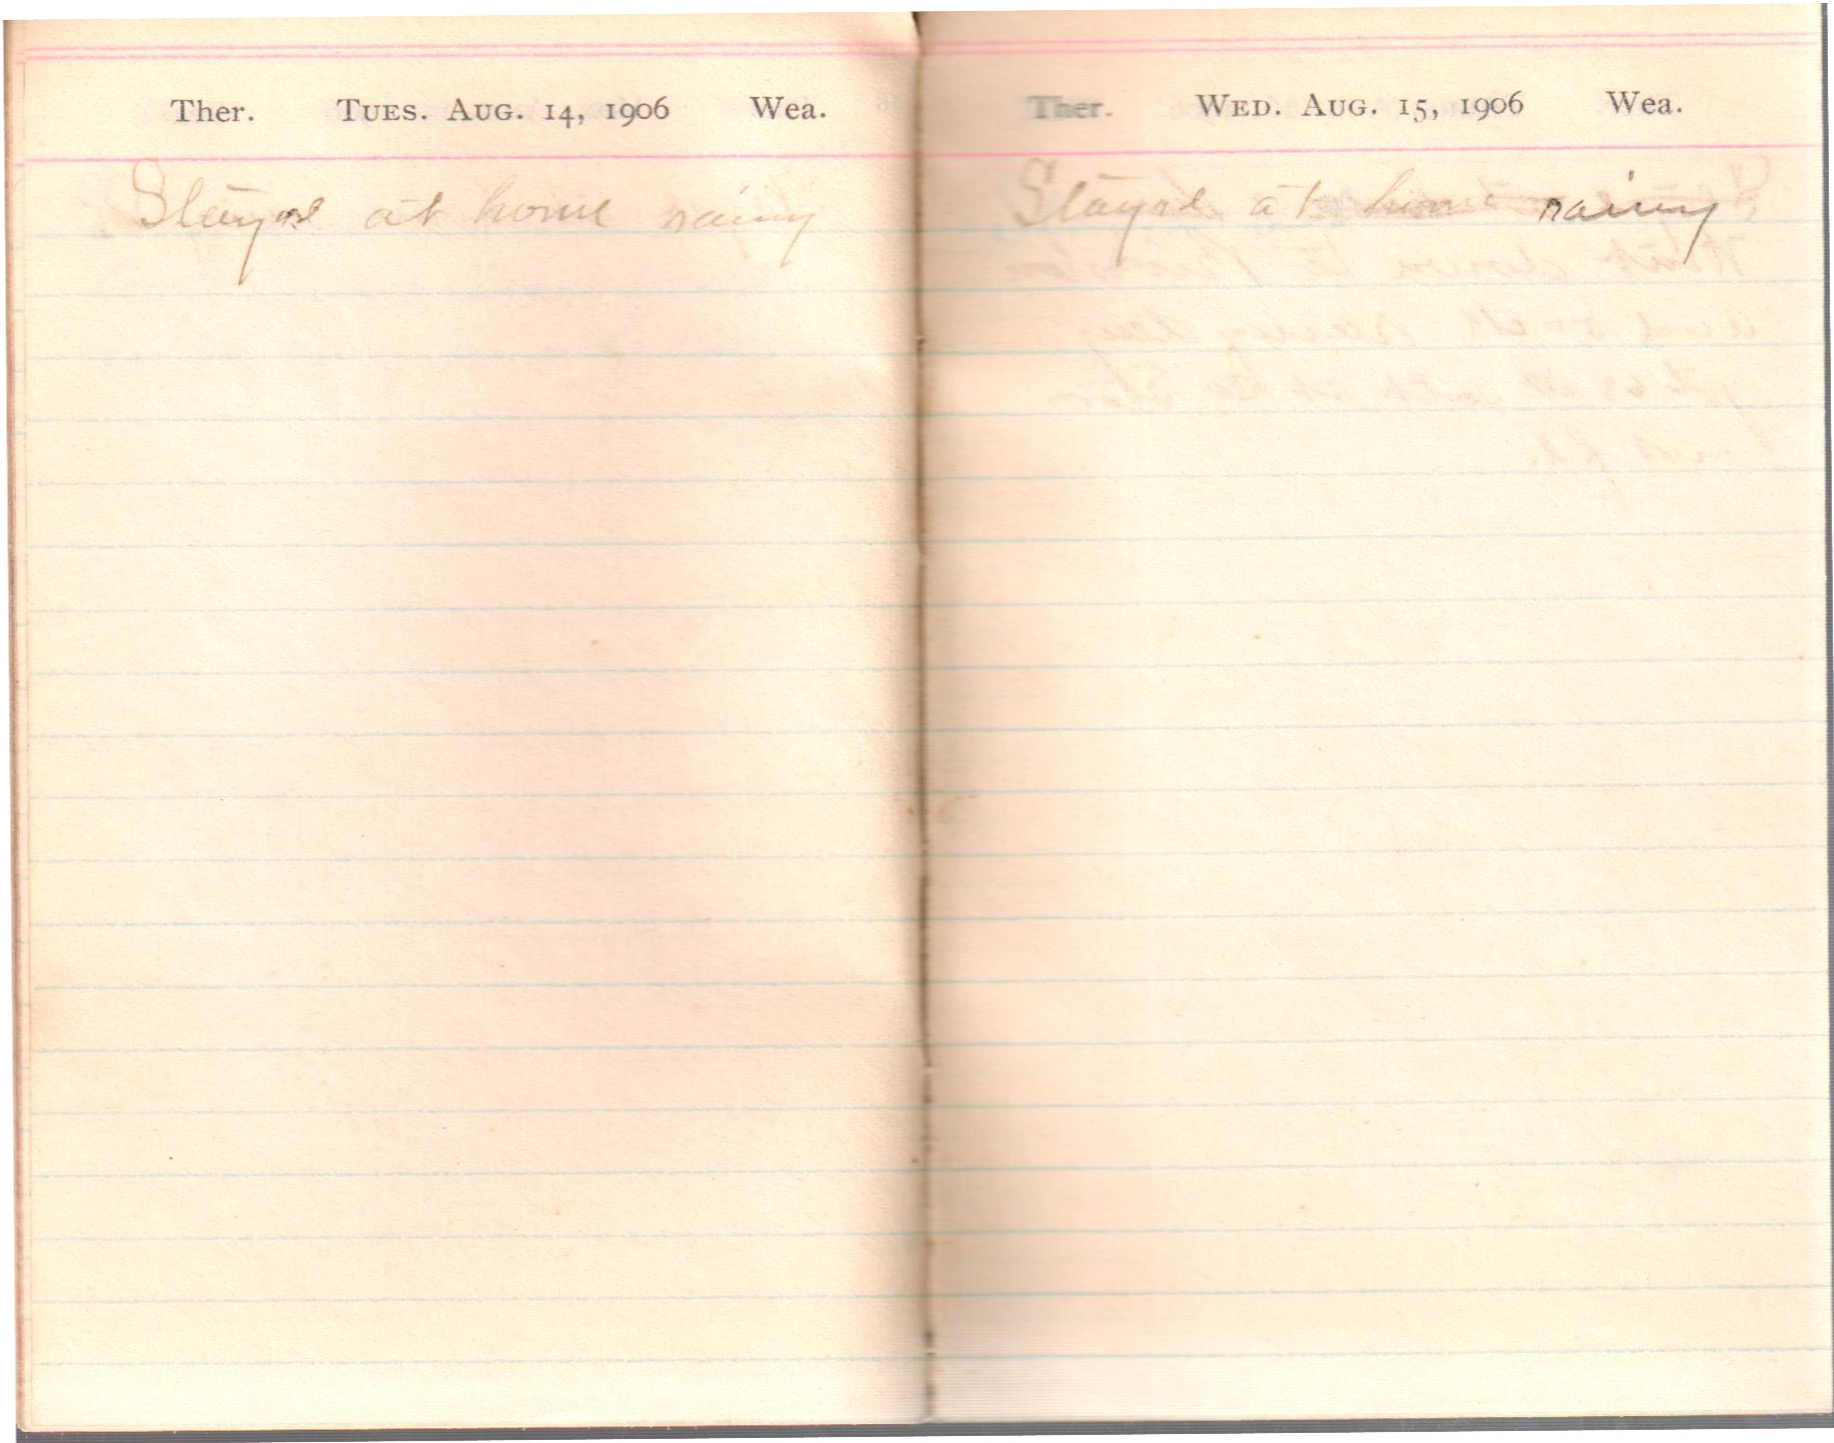 Ther. Tues. Aug. 14, 1906 Wea.
Stayed at home rainy
Ther. Wed. Aug. 15, 1906 Wea.
Stayed at home rainy